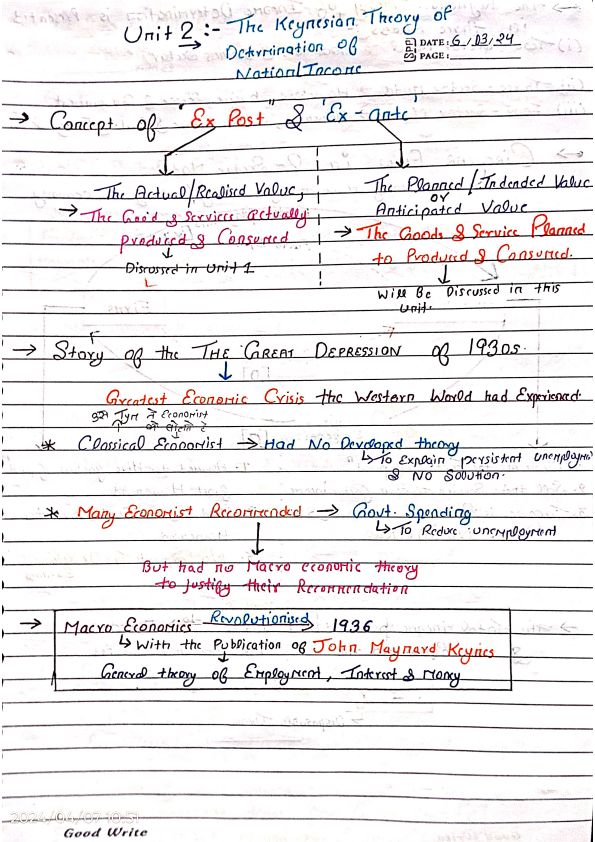 Unit 2 :- The Keynesian Theory of
Determination of
National Income
DATE: 6/03/24
PAGE:
→ Concept of "Ex Post" & 'Ex-ante'
The Actual/Realised Value,
→ The Good & Services actually
produced & Consumed
↓
Discussed in Unit 1
The Planned/Indended Value
or
Anticipated Value
→ The Goods & Service Planned
to Produced & Consumed.
↓
will Be Discussed in this
unit.
→ Story of the THE GREAT DEPRESSION of 1930s.
↓
Greatest Economic Crisis the Western World had Experienced.
Economist
* Classical Economist → Had No Developed theory
↳ To Explain persistent unemploym
& No Solution.
* Many Economist Recommended → Govt. Spending
↳ To Reduce unemployment
↓
But had no Macro economic theory
to justify their Recommendation
→ Macro Economics Revolutionised → 1936
↳ With the Publication of John Maynard Keynes
↓
General theory of Employment, Interest & Money
2024/04/07 10:51
Good Write